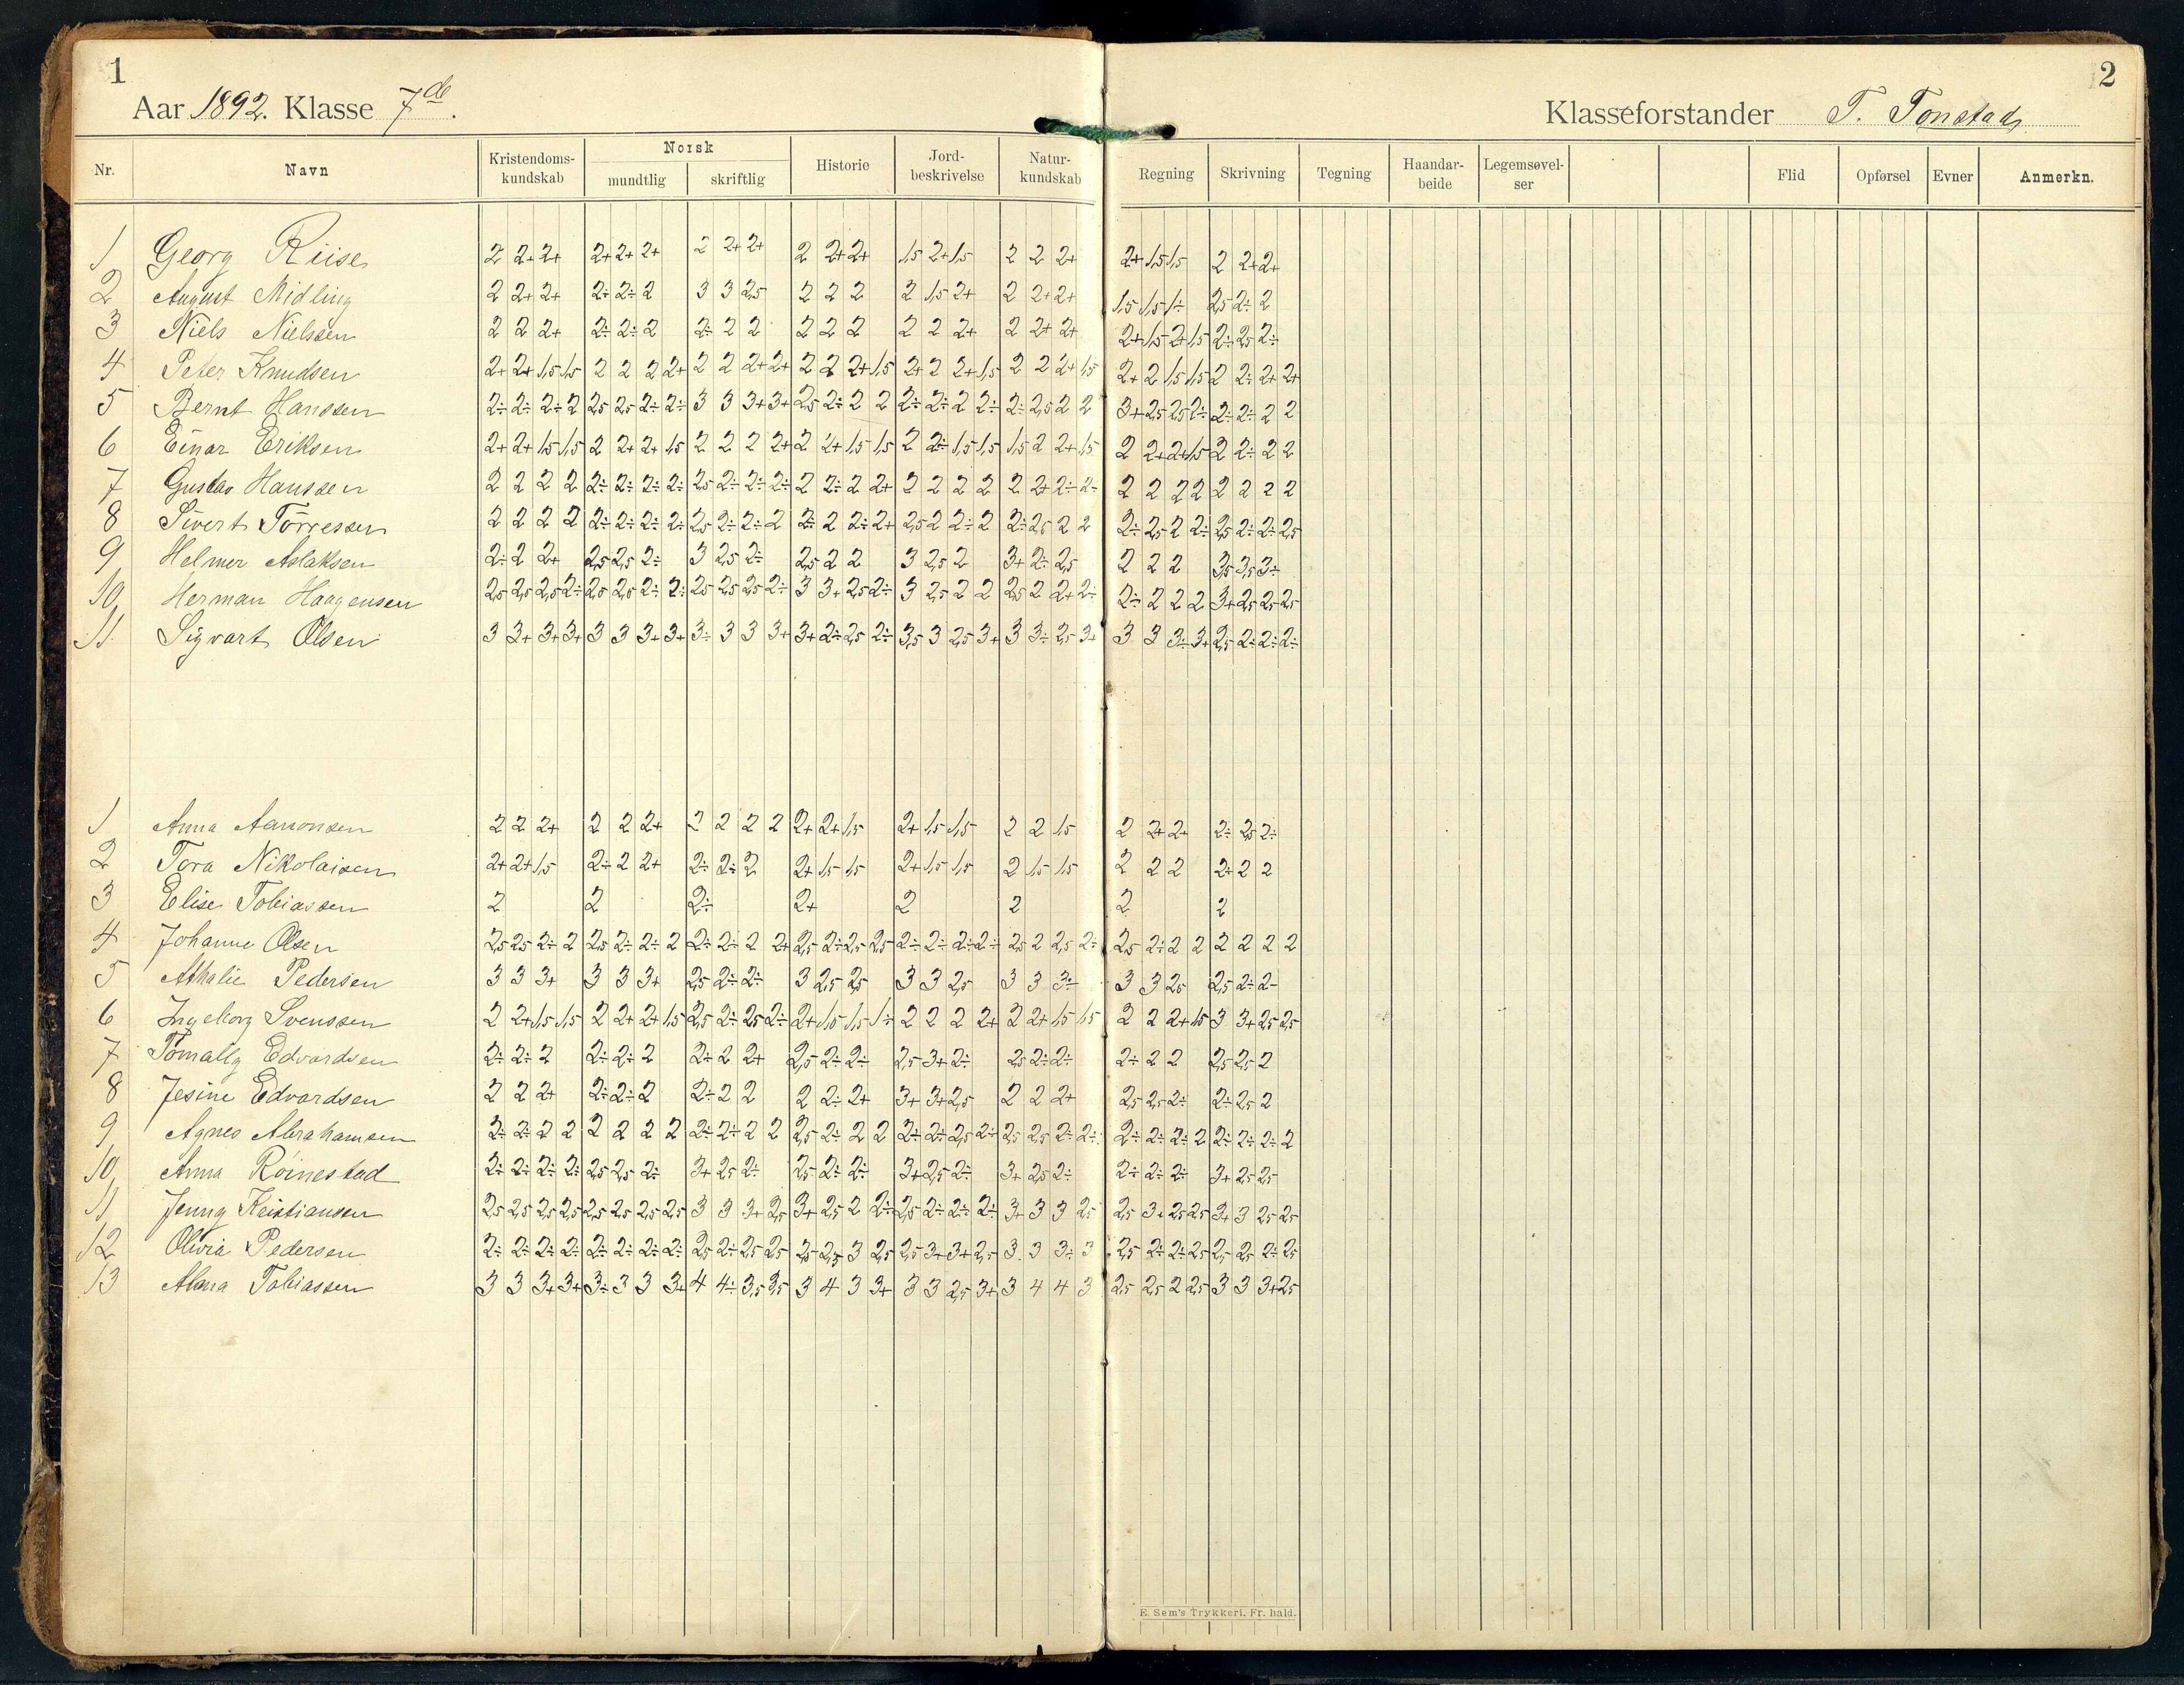 1
2
Aar 1892. Klasse 7de.
Klasseforstander T. Tonstad
Nr. Navn Kristendoms-kundskab Norsk mundtlig skriftlig Historie Jord-beskrivelse Natur-kundskab Regning Skrivning Tegning Haandar-beide Legemsøvel-ser Flid Opførsel Evner Anmerkn.
1 Georg Riise 2 2+ 2+ 2+ 2+ 2+ 2 2+ 2+ 2 2+ 2+ 1,5 2+ 1,5 2 2 2+ 2+ 1,5 1,5 2 2+ 2+
2 August Midling 2 2+ 2+ 2÷ 2÷ 2 3 3 2,5 2 2 2 2 1,5 2+ 2 2+ 2+ 1,5 1,5 1÷ 2,5 2÷ 2
3 Niels Nielsen 2 2 2+ 2÷ 2÷ 2 2÷ 2 2 2 2 2 2 2 2+ 2 2+ 2+ 2+ 1,5 2+ 1,5 2÷ 2,5 2÷
4 Peter Knudsen 2+ 2+ 1,5 1,5 2 2 2 2+ 2 2 2+ 2+ 2 2 2+ 1,5 2+ 2 2+ 1,5 2 2 2+ 1,5 2+ 2 1,5 1,5 2 2÷ 2+ 2+
5 Bernt Hanssen 2÷ 2÷ 2÷ 2 2,5 2,5 2÷ 2÷ 3 3 3+ 3+ 2,5 2÷ 2 2 2÷ 2÷ 2 2÷ 2÷ 2,5 2 2 3+ 2,5 2,5 2÷ 2÷ 2÷ 2 2
6 Einar Eriksen 2+ 2+ 1,5 1,5 2 2+ 2+ 1,5 2 2 2 2+ 2 2+ 1,5 1,5 2 2÷ 1,5 1,5 1,5 2 2+ 1,5 2 2+ 2+ 1,5 2 2÷ 2 2
7 Gustav Hanssen 2 2 2 2 2÷ 2÷ 2÷ 2÷ 2,5 2÷ 2÷ 2÷ 2 2÷ 2 2+ 2 2 2 2 2 2+ 2÷ 2÷ 2 2 2 2 2 2 2 2
8 Sivert Torressen 2 2 2 2 2÷ 2÷ 2÷ 2÷ 2,5 2÷ 2÷ 2 2÷ 2 2÷ 2+ 2,5 2 2÷ 2 2÷ 2,5 2 2 2÷ 2,5 2 2÷ 2,5 2÷ 2÷ 2,5
9 Helmer Aslaksen 2÷ 2 2+ 2,5 2,5 2÷ 3 2,5 2÷ 2,5 2 2 3 2,5 2 3+ 2÷ 2,5 2 2 2 3,5 3,5 3÷
10 Herman Haagensen 2,5 2,5 2,5 2÷ 2,5 2,5 2÷ 2÷ 2,5 2,5 2,5 2÷ 3 3+ 2,5 2÷ 3 2,5 2 2 2,5 2 2+ 2÷ 2÷ 2 2 2 3+ 2,5 2,5 2,5
11 Sigvart Olsen 3 3+ 3+ 3+ 3 3 3+ 3+ 3÷ 3 3 3+ 3+ 2÷ 2,5 2÷ 3,5 3 2,5 3+ 3 3÷ 2,5 3+ 3 3 3÷ 3+ 2,5 2÷ 2÷ 2÷
1 Anna Aanonsen 2 2 2+ 2 2 2+ 2 2 2 2 2+ 2+ 1,5 2+ 1,5 1,5 2 2 1,5 2 2+ 2+ 2÷ 2,5 2÷
2 Tora Nikolaisen 2+ 2+ 1,5 2÷ 2 2+ 2÷ 2÷ 2 2+ 1,5 1,5 2+ 1,5 1,5 2 1,5 1,5 2 2 2 2÷ 2 2
3 Elise Tobiassen 2 2 2÷ 2+ 2 2 2 2
4 Johanne Olsen 2,5 2,5 2÷ 2 2,5 2÷ 2÷ 2 2÷ 2÷ 2 2+ 2,5 2÷ 2,5 2,5 2÷ 2÷ 2÷ 2÷ 2,5 2 2,5 2÷ 2,5 2÷ 2 2 2 2 2 2
5 Athalie Pedersen 3 3 3+ 3 3 3+ 2,5 2÷ 2÷ 3 2,5 2,5 3 3 2,5 3 3 3÷ 3 3 2,5 2,5 2÷ 2÷
6 Ingeborg Svenssen 2 2+ 1,5 1,5 2 2+ 2+ 1,5 2,5 2÷ 2,5 2÷ 2+ 1,5 1,5 1÷ 2 2 2 2+ 2 2+ 1,5 1,5 2 2 2+ 1,5 3 3+ 2,5 2,5
7 Tomally Edvardsen 2÷ 2÷ 2 2÷ 2÷ 2 2÷ 2 2+ 2,5 2÷ 2÷ 2,5 3+ 2÷ 2,5 2÷ 2÷ 2÷ 2 2 2,5 2,5 2
8 Jesine Edvardsen 2 2 2+ 2÷ 2÷ 2 2÷ 2 2 2 2÷ 2+ 3+ 3+ 2,5 2 2 2+ 2,5 2,5 2÷ 2÷ 2,5 2
9 Agnes Abrahamsen 2÷ 2÷ 2 2 2 2 2 2 2÷ 2÷ 2 2 2,5 2÷ 2 2 2÷ 2÷ 2,5 2÷ 2,5 2,5 2÷ 2÷ 2÷ 2÷ 2÷ 2 2÷ 2÷ 2÷ 2
10 Anna Roinestad 2÷ 2÷ 2÷ 2÷ 2,5 2,5 2÷ 3+ 2,5 2÷ 2,5 2÷ 2÷ 3+ 2,5 2÷ 3+ 2,5 2÷ 2÷ 2÷ 2÷ 3+ 2,5 2,5
11 Jenny Kristiansen 2,5 2,5 2,5 2,5 2,5 2,5 2,5 2,5 3 3 3+ 2,5 3+ 2,5 2 2÷ 2,5 2÷ 2÷ 2÷ 3+ 3 3 2,5 2,5 3+ 2,5 2,5 3+ 3 2,5 2,5
12 Olivia Pedersen 2÷ 2÷ 2÷ 2÷ 2÷ 2÷ 2÷ 2÷ 2,5 2÷ 2,5 2,5 2,5 2,5 3 2,5 2,5 3+ 3+ 2,5 3 3 3÷ 3 2,5 2÷ 2÷ 2,5 2,5 2,5 2÷ 2,5
13 Tobiassen 3 3 3+ 3+ 3÷ 3 3 3+ 4 4÷ 3,5 3,5 3 4 3 3+ 3 3 2,5 3+ 3 4 4 3 2,5 2,5 2 2,5 3 3 3+ 2,5
E. Sem's Trykkeri. Fr. hald.